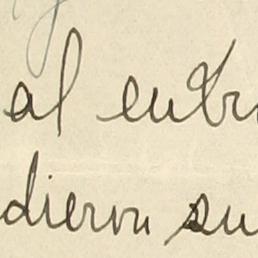 al entr
dieron su